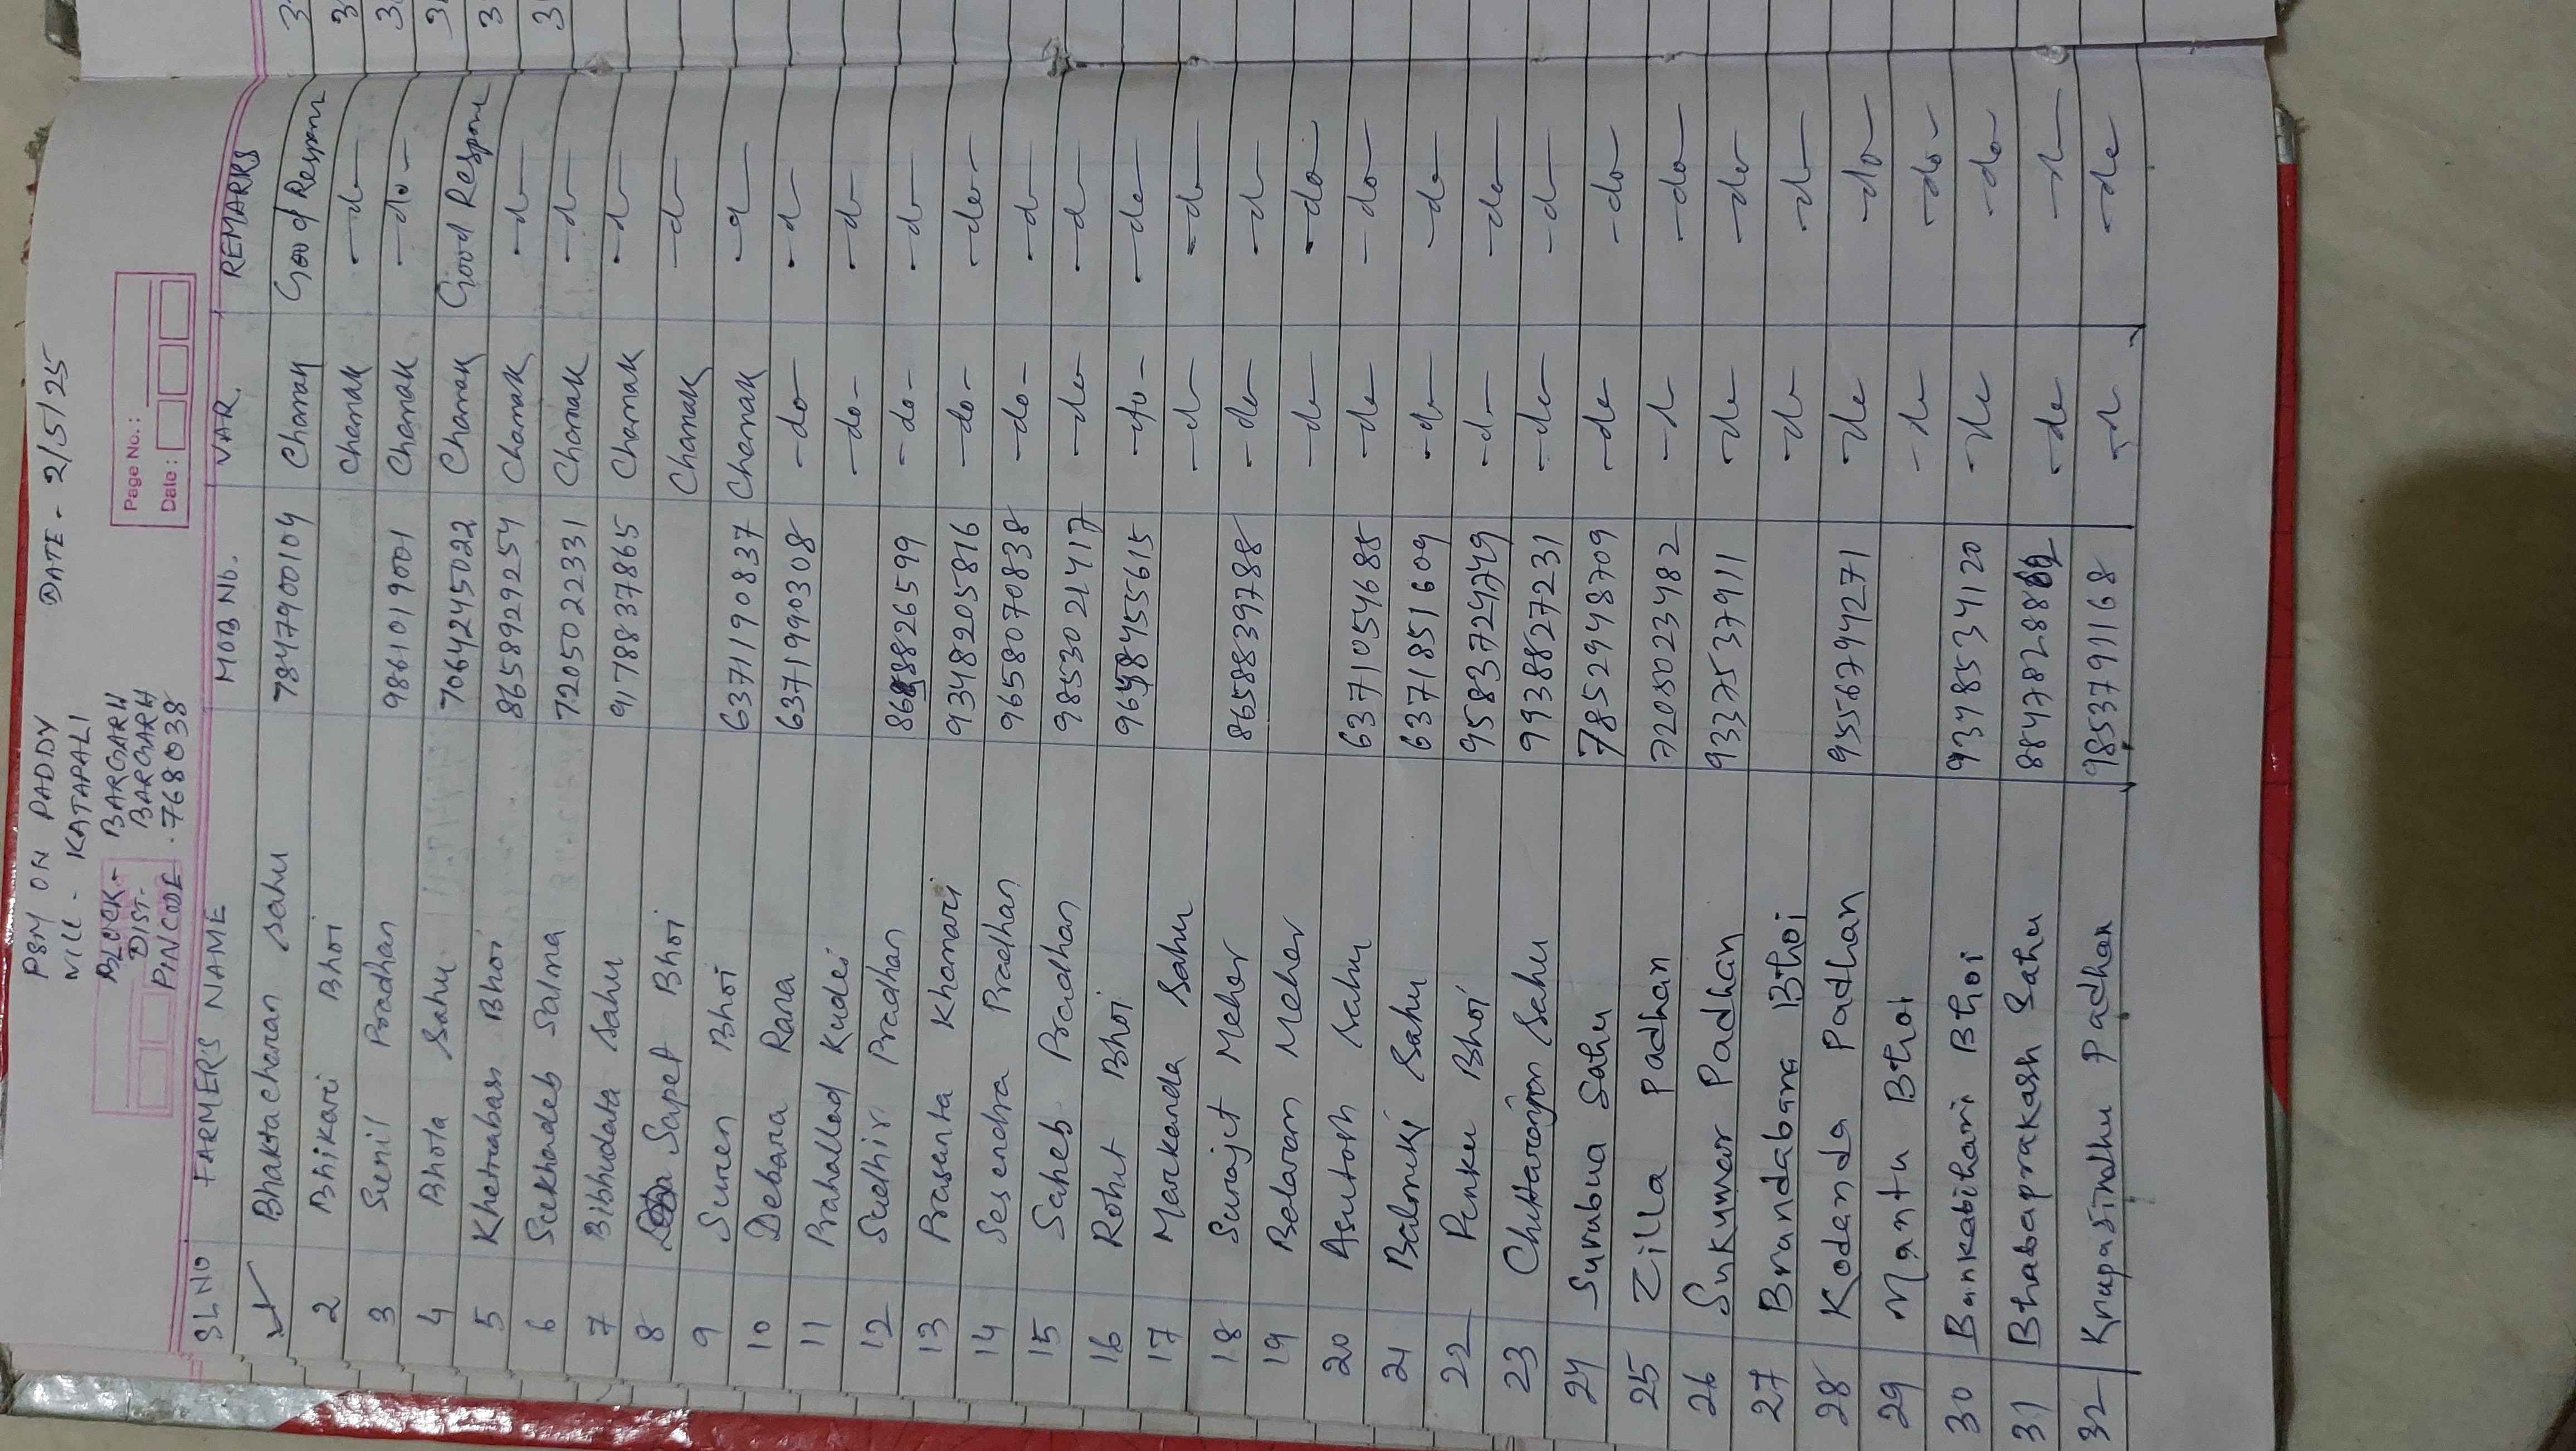 PSM ON PADDY DATE - 2/5/25
VILL - KATAPALI
BLOCK - BARGARH
DIST - BARGARH
PINCODE - 768038
Page No.:
Date:
SL NO FARMER'S NAME MOB No. VAR. REMARKS
Bhaktacharan Sahu 7847900104 Chamak Good Response
2 Bhikari Bhoi Chamak -do-
3 Sunil Pradhan 9861019001 Chamak -do-
4 Bhota Sahu 7064245022 Chamak Good Response
5 Khetrabasi Bhoi 8658929254 Chamak -do-
6 Sukhadeb Salma 7205022331 Chamak -do-
7 Bibhudata Sahu 9178837865 Chamak -do-
8 Sapet Bhoi Chamak -do-
9 Suren Bhoi 6371190837 Chamak -do-
10 Debara Rana 6371990308 -do- -do-
11 Prahallad Kudei -do- -do-
12 Sudhir Pradhan -do- -do-
13 Prasanta Khamari 9348205816 -do- -do-
14 Sesendra Pradhan 9658070838 -do- -do-
15 Saheb Pradhan 9853021417 -do- -do-
16 Rohit Bhoi -do- -do-
17 Markanda Sahu -do- -do-
18 Surajit Meher 8658839788 -do- -do-
19 Belaram Meher -do- -do-
20 Asutosh Sahu 6371054685 -do- -do-
21 Balmiki Sahu 6371851609 -do- -do-
22 Pinku Bhoi 9583724749 -do- -do-
23 Chittaranjan Sahu 9938827231 -do- -do-
24 Surubua Sahu 7852948709 -do- -do-
25 Zilla Padhan 7205023482 -do- -do-
26 Sukumar Padhan 9337537911 -do- -do-
27 Brundabana Bhoi -do- -do-
28 Kodanda Padhan 9556794271 -do- -do-
29 Mantu Bhoi -do- -do-
30 Bankabihari Bhoi 9348534120 -do- -do-
31 Bhabaprakash Sahu -do- -do-
32 Krupasindhu Padhan 9853791168 -do- -do-